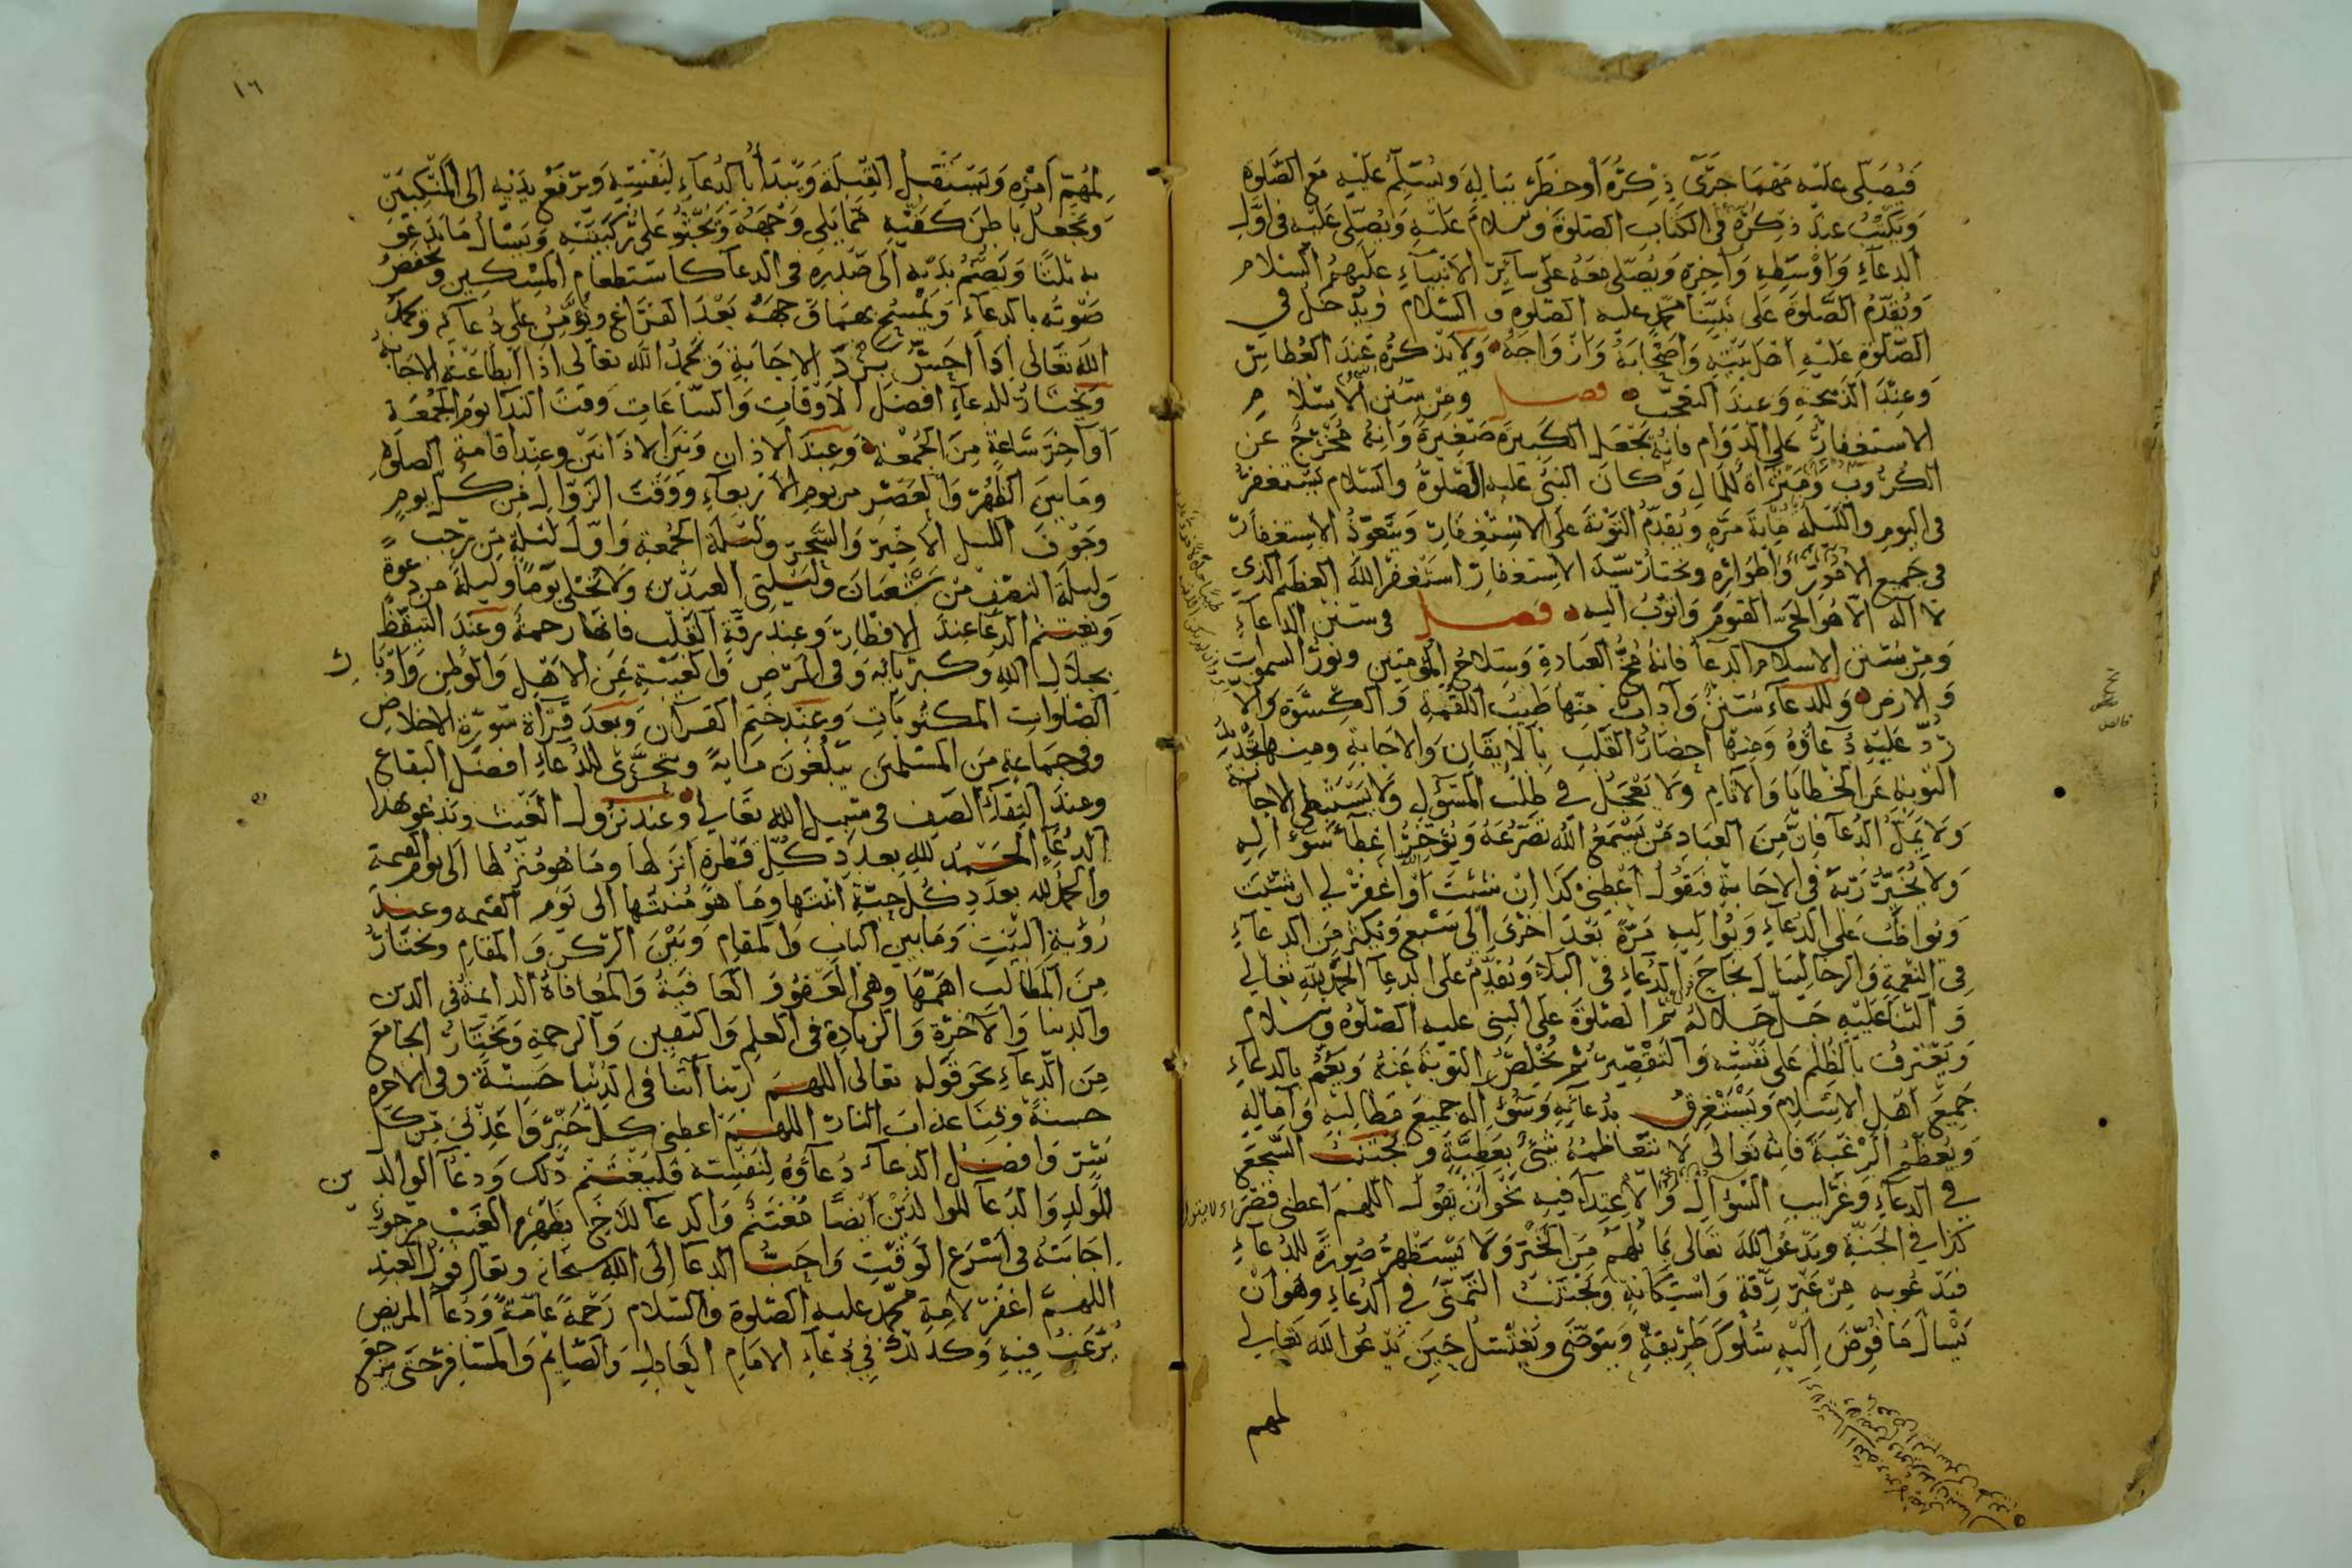 فيصلي عليه مهما جرى ذكره أو خطر بباله ويسلم عليه مع الصلوة
ويكتب عند ذكره في الكتاب الصلوة وسلام عليه ويصلي عليه في أول
الدعاء وأوسطه وآخره ويصلي معه على سائر الأنبياء عليهم السلام
ويقدم الصلوة على نبينا محمد عليه الصلوة والسلام ويدخل في
الصلوة عليه أهل بيته وأصحابه وأزواجه ولا يذكره عند العطاس
وعند الذبيحة وعند التعجب فصل ومن سنن الإسلام
الاستغفار على الدوام فإنه يجعل الكبيرة صغيرة وإنه مخرج عن
الكروب ومثراة للمال وكان النبي عليه الصلوة والسلام يستغفر
في اليوم والليلة مائة مرة ويقدم التوبة على الاستغفار ويتعوذ الاستغفار
في جميع الأمور وأطواره ويختار سيد الاستغفار أستغفر الله العظيم الذي
لا إله إلا هو الحي القيوم وأتوب إليه فصل في سنن الدعاء
ومن سنن الإسلام الدعا فإنه مخ العبادة وسلاح المؤمنين ونور السموات
والارض وللدعاء سنن وآداب منها طيب اللقمة والكسوة وإلا
رد عليه دعاؤه ومنها إحضار القلب بالإيقان والإجابة ومنها تجديد
التوبة عن الخطايا والآثام ولا يعجل في طلب المسؤل ولا يستبطي الاجابة
ولا يمل الدعا فإن من العباد من يسمع الله تضرعه ويؤخر إعطاء سؤاله
ولا يخير ربه في الإجابة فيقول أعطني كذا إن شئت أو اغفر لي إن شئت
ويواظب على الدعاء ويواليه مرة بعد أخرى إلى سبع ويكثر من الدعاء
في النعمة والرخا لينال نجاح الدعاء في البلاء ويقدم على الدعا الحمد لله تعالى
والثنا عليه جل جلاله ثم الصلوة على النبي عليه الصلوة وسلام
ويعترف بالظلم على نفسه والتقصير ثم يخلص التوبة عنه ويعم بالدعاء
جميع أهل الإسلام ويستغرق بدعائه وسؤاله جميع مطالبه وآماله
ويعظم الرغبة فإنه تعالى لا تتعاظمه شيء بعطية ويجتنب السجع
في الدعاء وغرايب السؤال والاعتدا فيه نحو أن يقول اللهم أعطني قصرا
كذا في الجنة ويدعو الله تعالى بما يلهم من الخير ولا يستظهر صورة للدعاء
فيدعو به من غير رقة واستكانة ويجتنب التمني في الدعاء وهو أن
يسأل ما فوض إليه سلوك طريقه ويتوضى ويغتسل حين يدعو الله تعالى
لمهم
١٦
لمهم أمره ويستقبل القبلة ويبدأ بالدعاء لنفسه ويرفع يديه إلى المنكبين
ويجعل باطن كفيه مما يلي وجهه ويجثو على ركبتيه ويسأل ما يدعو
به ثلثا ويضم يديه إلى صدره في الدعا كاستطعام المسكين ويخفض
صوته بالدعاء ويمسح بهما وجهه بعد الفراغ ويؤمن على دعائه ويحمد
الله تعالى إذا أحس برد الإجابة ويحمد الله تعالى إذا أبطأ عنه الاجابة
ويختار للدعاء أفضل الأوقات والساعات وقت الندا يوم الجمعة
أو آخر ساعة من الجمعة وعند الاذان وبين الاذانين وعند إقامة الصلوة
وما بين الظهر والعصر من يوم الأربعاء ووقت الزوال من كل يوم
وجوف الليل الأخير والسحر وليلة الجمعة وأول ليلة من رجب
وليلة النصف من شعبان وليلتي العيدين ولا يخلي يوما وليلة من دعوة
ويغتنم الدعا عند الافطار وعند رقة القلب فإنها رحمة وعند التيقظ
بجلال الله وكبريائه وفي المرض والغيبة عن الاهل والوطن وأدبار
الصلوات المكتوبات وعند ختم القرآن وبعد قرأة سورة الاخلاص
وفي جماعة من المسلمين يبلغون مائة ويتحرى للدعاء أفضل البقاع
وعند التقاء الصف في سبيل الله تعالى وعند نزول الغيث ويدعو بهذا
الدعاء الحمد لله بعدد كل قطرة أنزلها وما هو منزلها إلى يوم القيمة
والحمد لله بعدد كل حبة أنبتها وما هو منبتها إلى يوم القيمة وعند
رؤية البيت وما بين الباب والمقام وبين الركن والمقام ويختار
من المطالب أهمها وهي العفو والعافية والمعافاة الدائمة في الدين
والدنيا والآخرة والزيادة في العلم واليقين والرحمة ويختار الجامع
من الدعاء نحو قوله تعالى اللهم ربنا آتنا في الدنيا حسنة وفي الآخرة
حسنة وقنا عذاب النار اللهم أعطني كل خير وأعذني من كل
شر وأفضل الدعاء دعاؤه لنفسه فليغتنم ذلك ودعا الوالدين
للولد والدعا للوالدين أيضا مغتنم والدعا للأخ بظهر الغيب مرجو
إجابته في أسرع الوقت وأحب الدعا إلى الله سبحانه وتعالى قول العبد
اللهم اغفر لأمة محمد عليه الصلوة والسلام رحمة عامة ودعا المريض
يرغب فيه وكذلك في دعاء الامام العادل والصايم والمسافر حتى يرجع